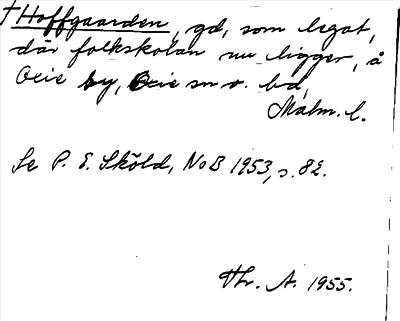 †Hoffgaarden, gd, som legat,
där folkskolan nu ligger, å
Oxie by, Oxie sn o. hd,
Malm. l.
Se P. E. Sköld, NoB 1953, s. 82.
Thr. A. 1955.